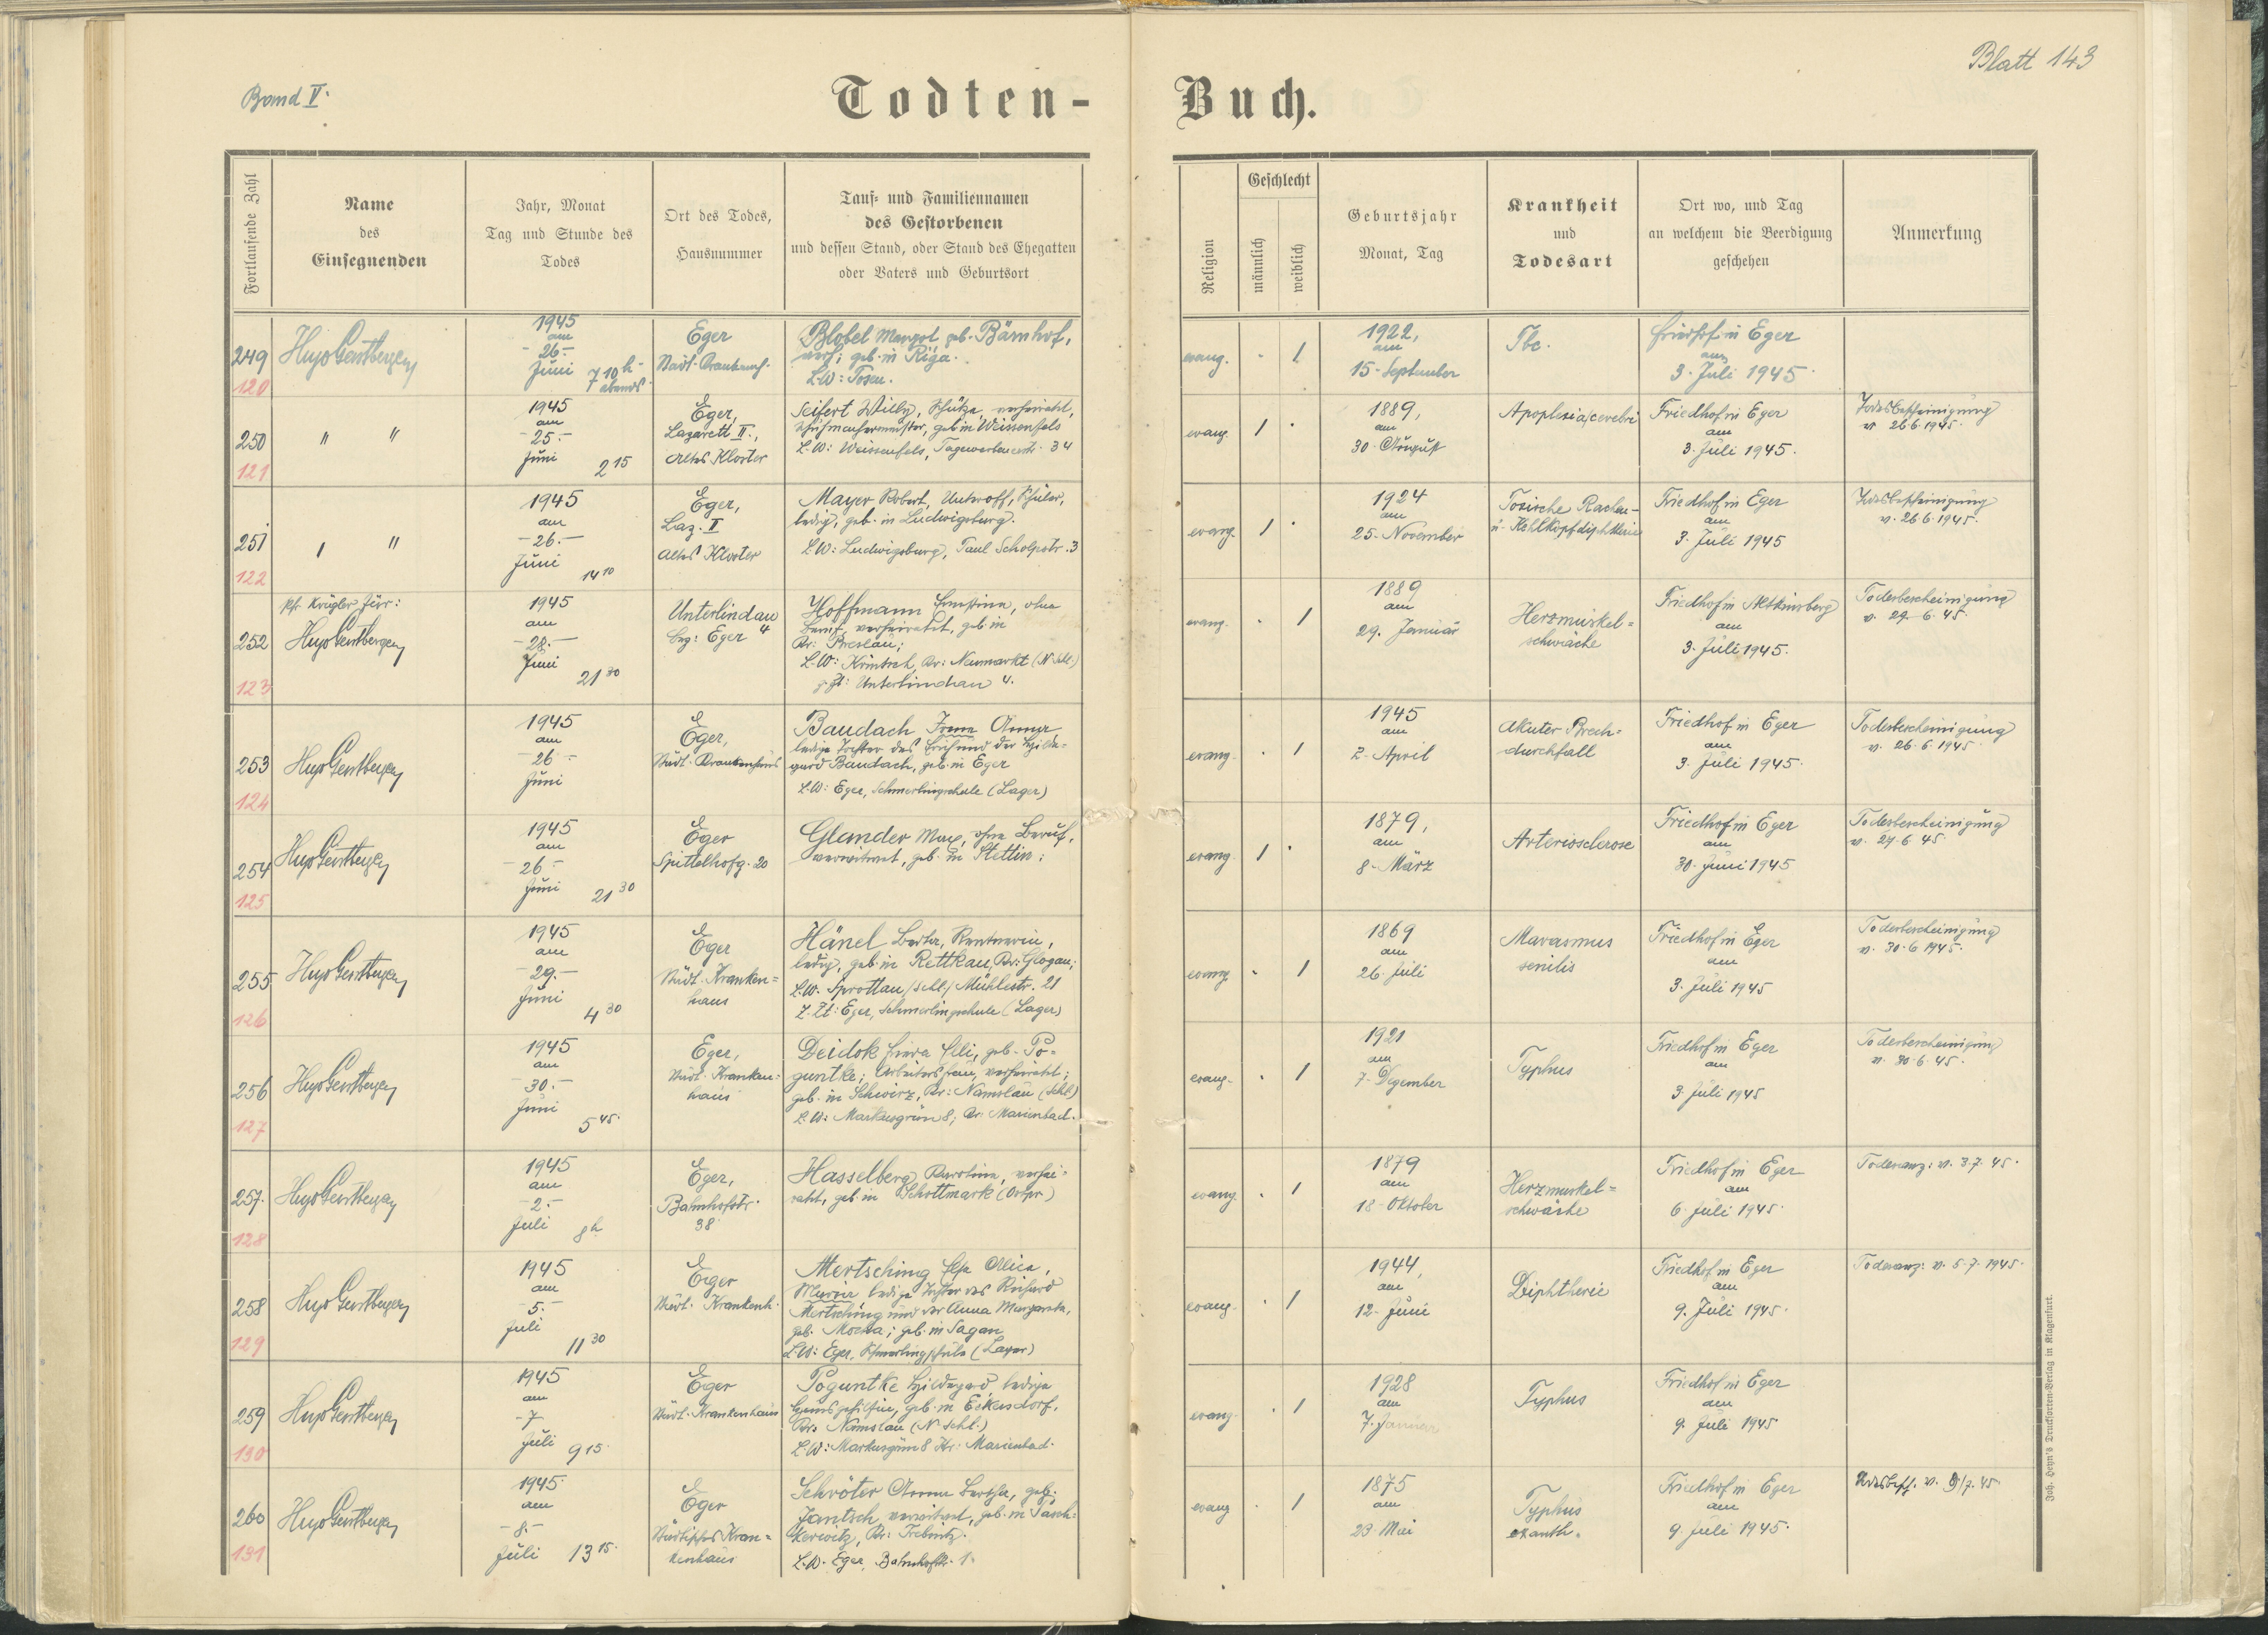 Band V.
Blatt 143
Todten-Buch.
Fortlaufende Zahl
Name
des
Einsegnenden
Jahr, Monat
Tag und Stunde des
Todes
Ort des Todes,
Hausnummer
Tauf- und Familiennamen
des Gestorbenen
und dessen Stand, oder Stand des Ehegatten
oder Vaters und Geburtsort
Religion
Geschlecht
männlich
weiblich
Geburtsjahr
Monat, Tag
Krankheit
und
Todesart
Ort wo, und Tag
an welchem die Beerdigung
geschehen
Anmerkung
249
120
Hugo Gerstberger
1945
am
26.-
Juni
7 10 h
abends
Eger
Städt. Krankenh.
Blobel Margot geb. Bärnhof,
verh; geb. in Riga.
L.W: Posen.
evang.
1
1922,
am
15. September
Tbc.
Friedhof in Eger
am
3. Juli 1945
250
121
" "
1945
am
25.-
Juni
2 15
Eger,
Lazarett II.,
Altes Kloster
Seifert Willy, Schütze, verheiratet,
Schuhmachermeister, geb. in Weissenfels
L.W: Weissenfels, Tagewerbenerstr. 34
evang.
1
1889,
am
30. August
Apoplexia cerebri
Friedhof in Eger
am
3. Juli 1945.
Todesbescheinigung
v. 26.6.1945.
251
122
" "
1945
am
26.-
Juni
14 10
Eger,
Laz. II
Altes Kloster
Mayer Robert, Unteroff, Schüler,
ledig, geb. in Ludwigsburg.
L.W: Ludwigsburg, Paul Scholpstr. 3
evang.
1
1924
am
25. November
Toxische Rachen-
u. Kehlkopfdiphtherie
Friedhof in Eger
am
3. Juli 1945
Todesbescheinigung
v. 26.6.1945.
252
123
Pfr. Krügler für:
Hugo Gerstberger
1945
am
28.-
Juni
21 30
Unterlindau
4
Bez: Eger
Hoffmann Ernstine, ohne
Beruf, verheiratet, geb. in
Kr: Breslau;
L.W: Krintsch, Kr: Neumarkt (N. Schl.)
z. Zt: Unterlindau 4.
evang.
1
1889
am
29. Januar
Herzmuskel=
schwäche
Friedhof in Altkinsberg
am
3. Juli 1945.
Todesbescheinigung
v. 29.6.45.
253
124
Hugo Gerstberger
1945
am
26.-
Juni
Eger,
Städt. Krankenhaus
Baudach Irene Anna
ledige Tochter des und der Hilde=
gard Baudach, geb. in Eger
L.W: Eger, Schmerlingschule (Lager)
evang.
1
1945
am
2. April
Akuter Brech=
durchfall
Friedhof in Eger
am
3. Juli 1945.
Todesbescheinigung
v. 26.6.1945
254
125
Hugo Gerstberger
1945
am
26.-
Juni
21 30
Eger
Spittelhofg. 20
Glander Max, ohne Beruf,
verwitwet, geb. in Stettin;
evang.
1
1879,
am
8. März
Arteriosclerose
Friedhof in Eger
am
30. Juni 1945
Todesbescheinigung
v. 29.6.45
255
126
Hugo Gerstberger
1945
am
29.-
Juni
4 30
Eger
Städt. Kranken=
haus
Hänel Berta, Rentnerin,
ledig, geb. in Rettkau, Kr: Glogau;
L.W. Sprottau /Schl/ Mühlestr. 21
z. Zt: Eger, Schmerlingschule (Lager)
evang.
1
1869
am
26. Juli
Marasmus
senilis
Friedhof in Eger
am
3. Juli 1945
Todesbescheinigung
v. 30.6.1945.
256
127
Hugo Gerstberger
1945
am
30.-
Juni
5 45.
Eger,
Städt. Kranken=
haus
Deidok Elli, geb. Po=
guntke; Arbeitersfrau, verheiratet;
geb. in Schwirz, Kr: Namslau (Schl.)
L.W: Markusgrün 8, Kr: Marienbad.
evang.
1
1921
am
7. Dezember
Typhus
Friedhof in Eger
am
3. Juli 1945
Todesbescheinigung
v. 30.6.45.
257.
128
Hugo Gerstberger
1945
am
2.-
Juli
8 h
Eger,
Bahnhofstr.
38
Hasselberg Karoline, verhei=
ratet, geb. in Schottmark (Ostpr.)
evang.
1
1879
am
18. Oktober
Herzmuskel=
schwäche
Friedhof in Eger
am
6. Juli 1945.
Todesanz: v. 3.7.45.
258
129
Hugo Gerstberger
1945
am
5.-
Juli
11 30
Eger
Städt. Krankenh.
Mertsching Elsa Alice,
ledige Tochter des Richard
Mertsching und der Anna Margareta,
geb. Mocha; geb. in Sagan
L.W: Eger, Schmerlingschule (Lager)
evang.
1
1944,
am
12. Juni
Diphtherie
Friedhof in Eger
am
9. Juli 1945.
Todesanz: v. 5.7.1945.
259
130
Hugo Gerstberger
1945
am
7
Juli
9 15.
Eger
Städt. Krankenhaus
Poguntke Hildegard, ledige
Hausgehilfin, geb. in Eckersdorf,
Kr. Namslau (N. Schl.)
L.W: Markusgrün 8 Kr: Marienbad.
evang.
1
1928
am
7. Januar
Typhus
Friedhof in Eger
am
9. Juli 1945
260
131
Hugo Gerstberger
1945.
am
8.-
Juli
13 15.
Eger
Städtisches Kran=
kenhaus
Schröter Anna Bertha, geb.
Jantsch, verwitwet, geb. in Pasch=
kerwitz, Kr: Trebnitz.
L.W. Eger, Bahnhofstr. 1.
evang
1
1875
am
23. Mai
Typhus
exanth.
Friedhof in Eger
am
9. Juli 1945.
Todesbesch. v. 9/7.45.
Joh. Heyn's Drucksorten-Verlag in Klagenfurt.